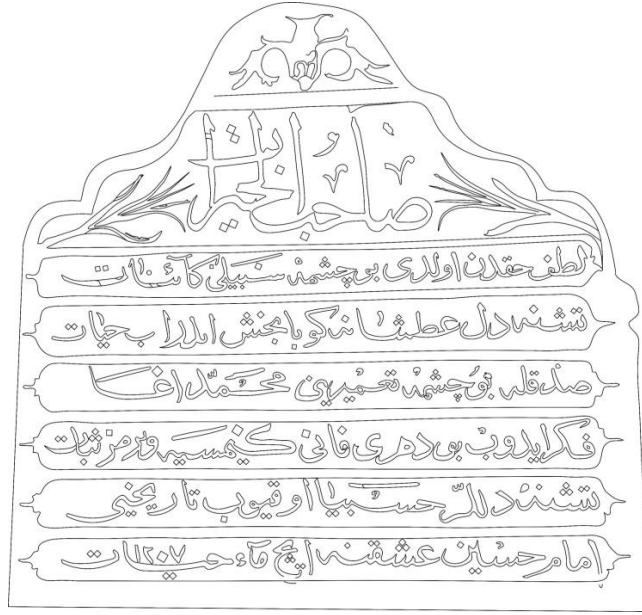 صاحب الخيرات
لطف حقدن اولدى بو چشمه سنبيلى كائنات
تشنه دل عطشانه كويا بخش ايدر اب حيات
صدقله بو چشمۀ تعميرينى محمّد اغا
فكر ايدوب بو دهرى فانى كيمسيه ويرمز ثبات
تشنه دللر حسبيا اوقيوب تاريخنى
امام حسين عشقنه ايچ ماء حيات ١٢٠٧